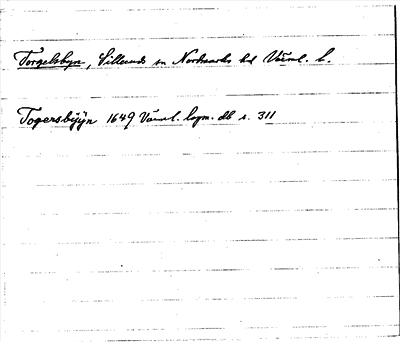 Torgelsbyn, Silleruds sn Nordmarks hd Värml. l.
Togersbÿyn 1649 Värml. lagm. db s. 311